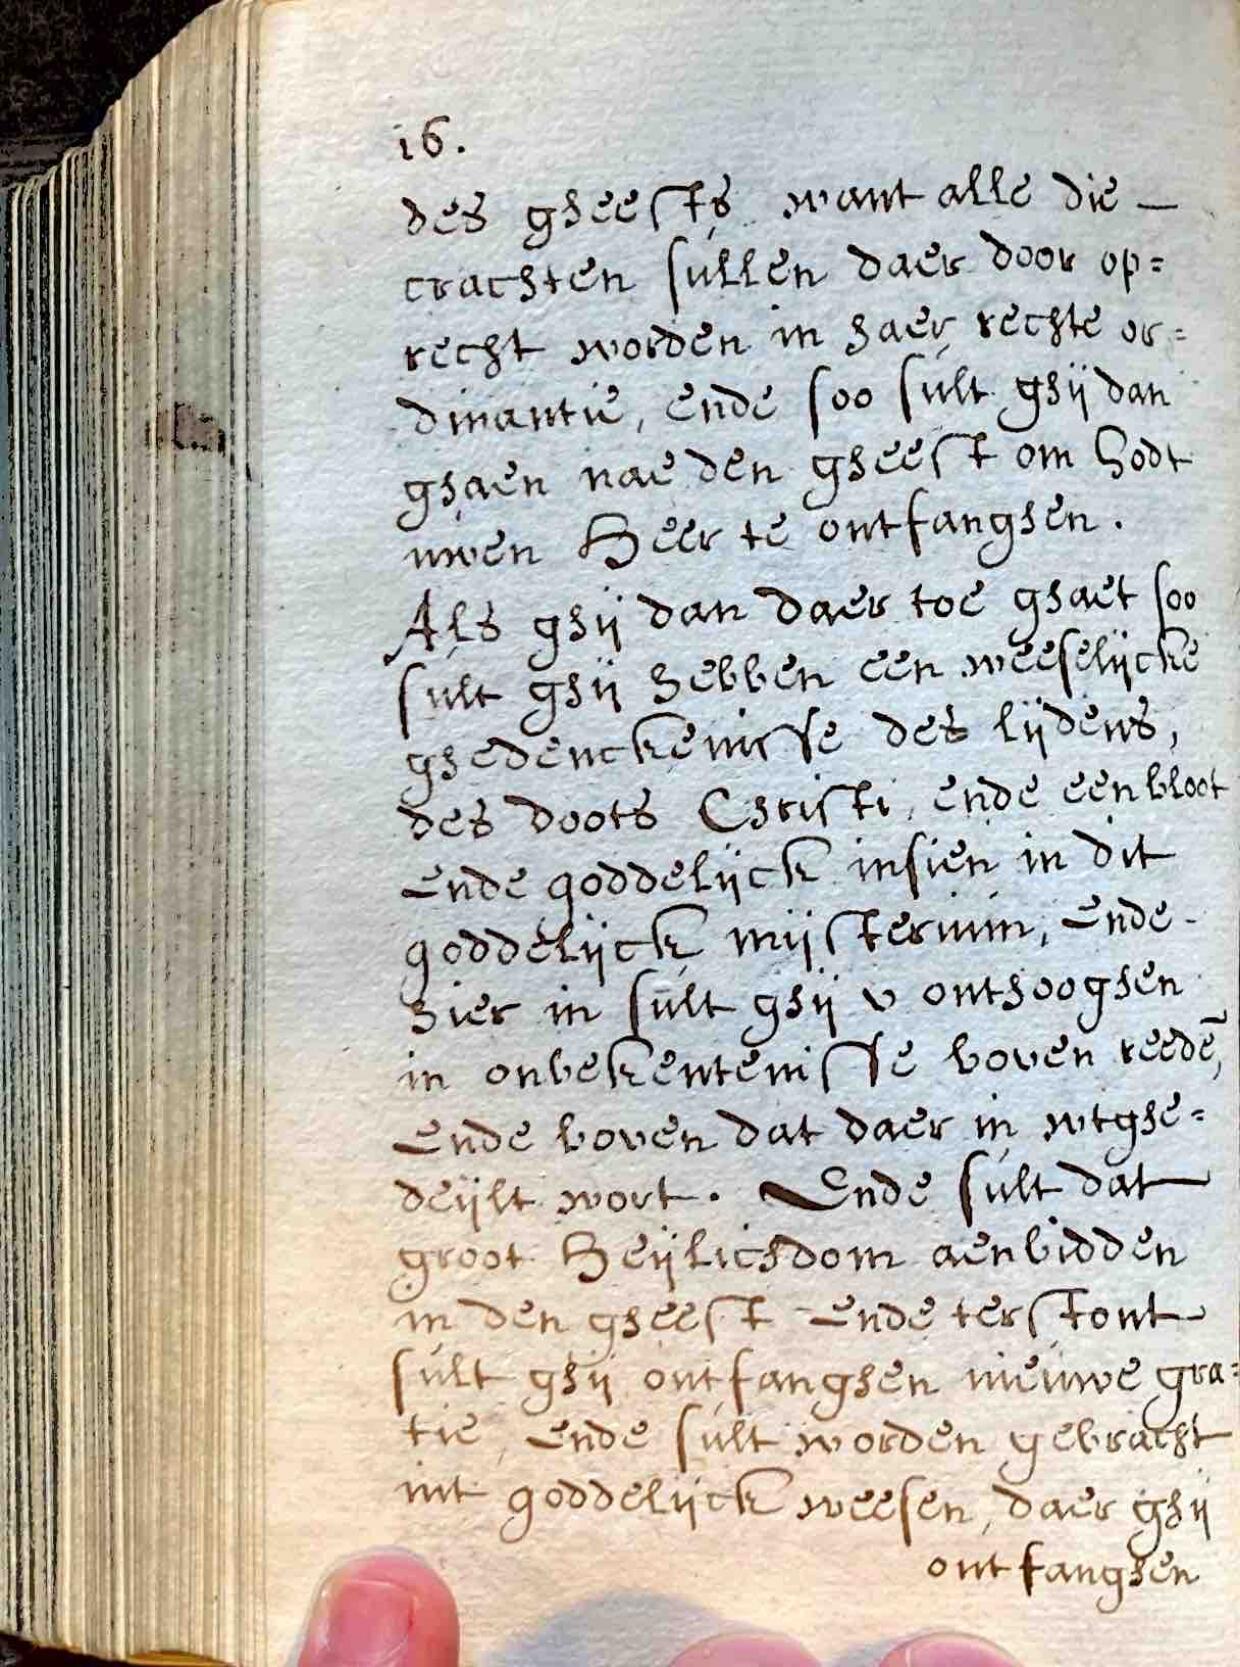 16.
des gheests want alle die —
crachten sullen daer door op=
recht worden in haer rechte or=
dinantie, ende soo sult ghij dan
ghaen nae den gheest om Godt
uwen Heer te ontfanghen.
Als ghij dan daer toe ghaet soo
sult ghij hebben een weeselijcke
ghedenckenisse des lijdens,
des doots Christi, ende een bloot
Ende goddelijck insien in dit
goddelijck mijsterium, Ende -
hier in sult ghij v onthooghen
in onbekentenisse boven reedē,
Ende boven dat daer in wtghe=
deijlt wort. Ende sult dat
groot Heijlichdom aenbidden
in den gheest Ende terstont
sult ghij ontfanghen nieuwe gra=
tie, Ende sult worden gebracht
int goddelijck weesen, daer ghij
ontfanghen